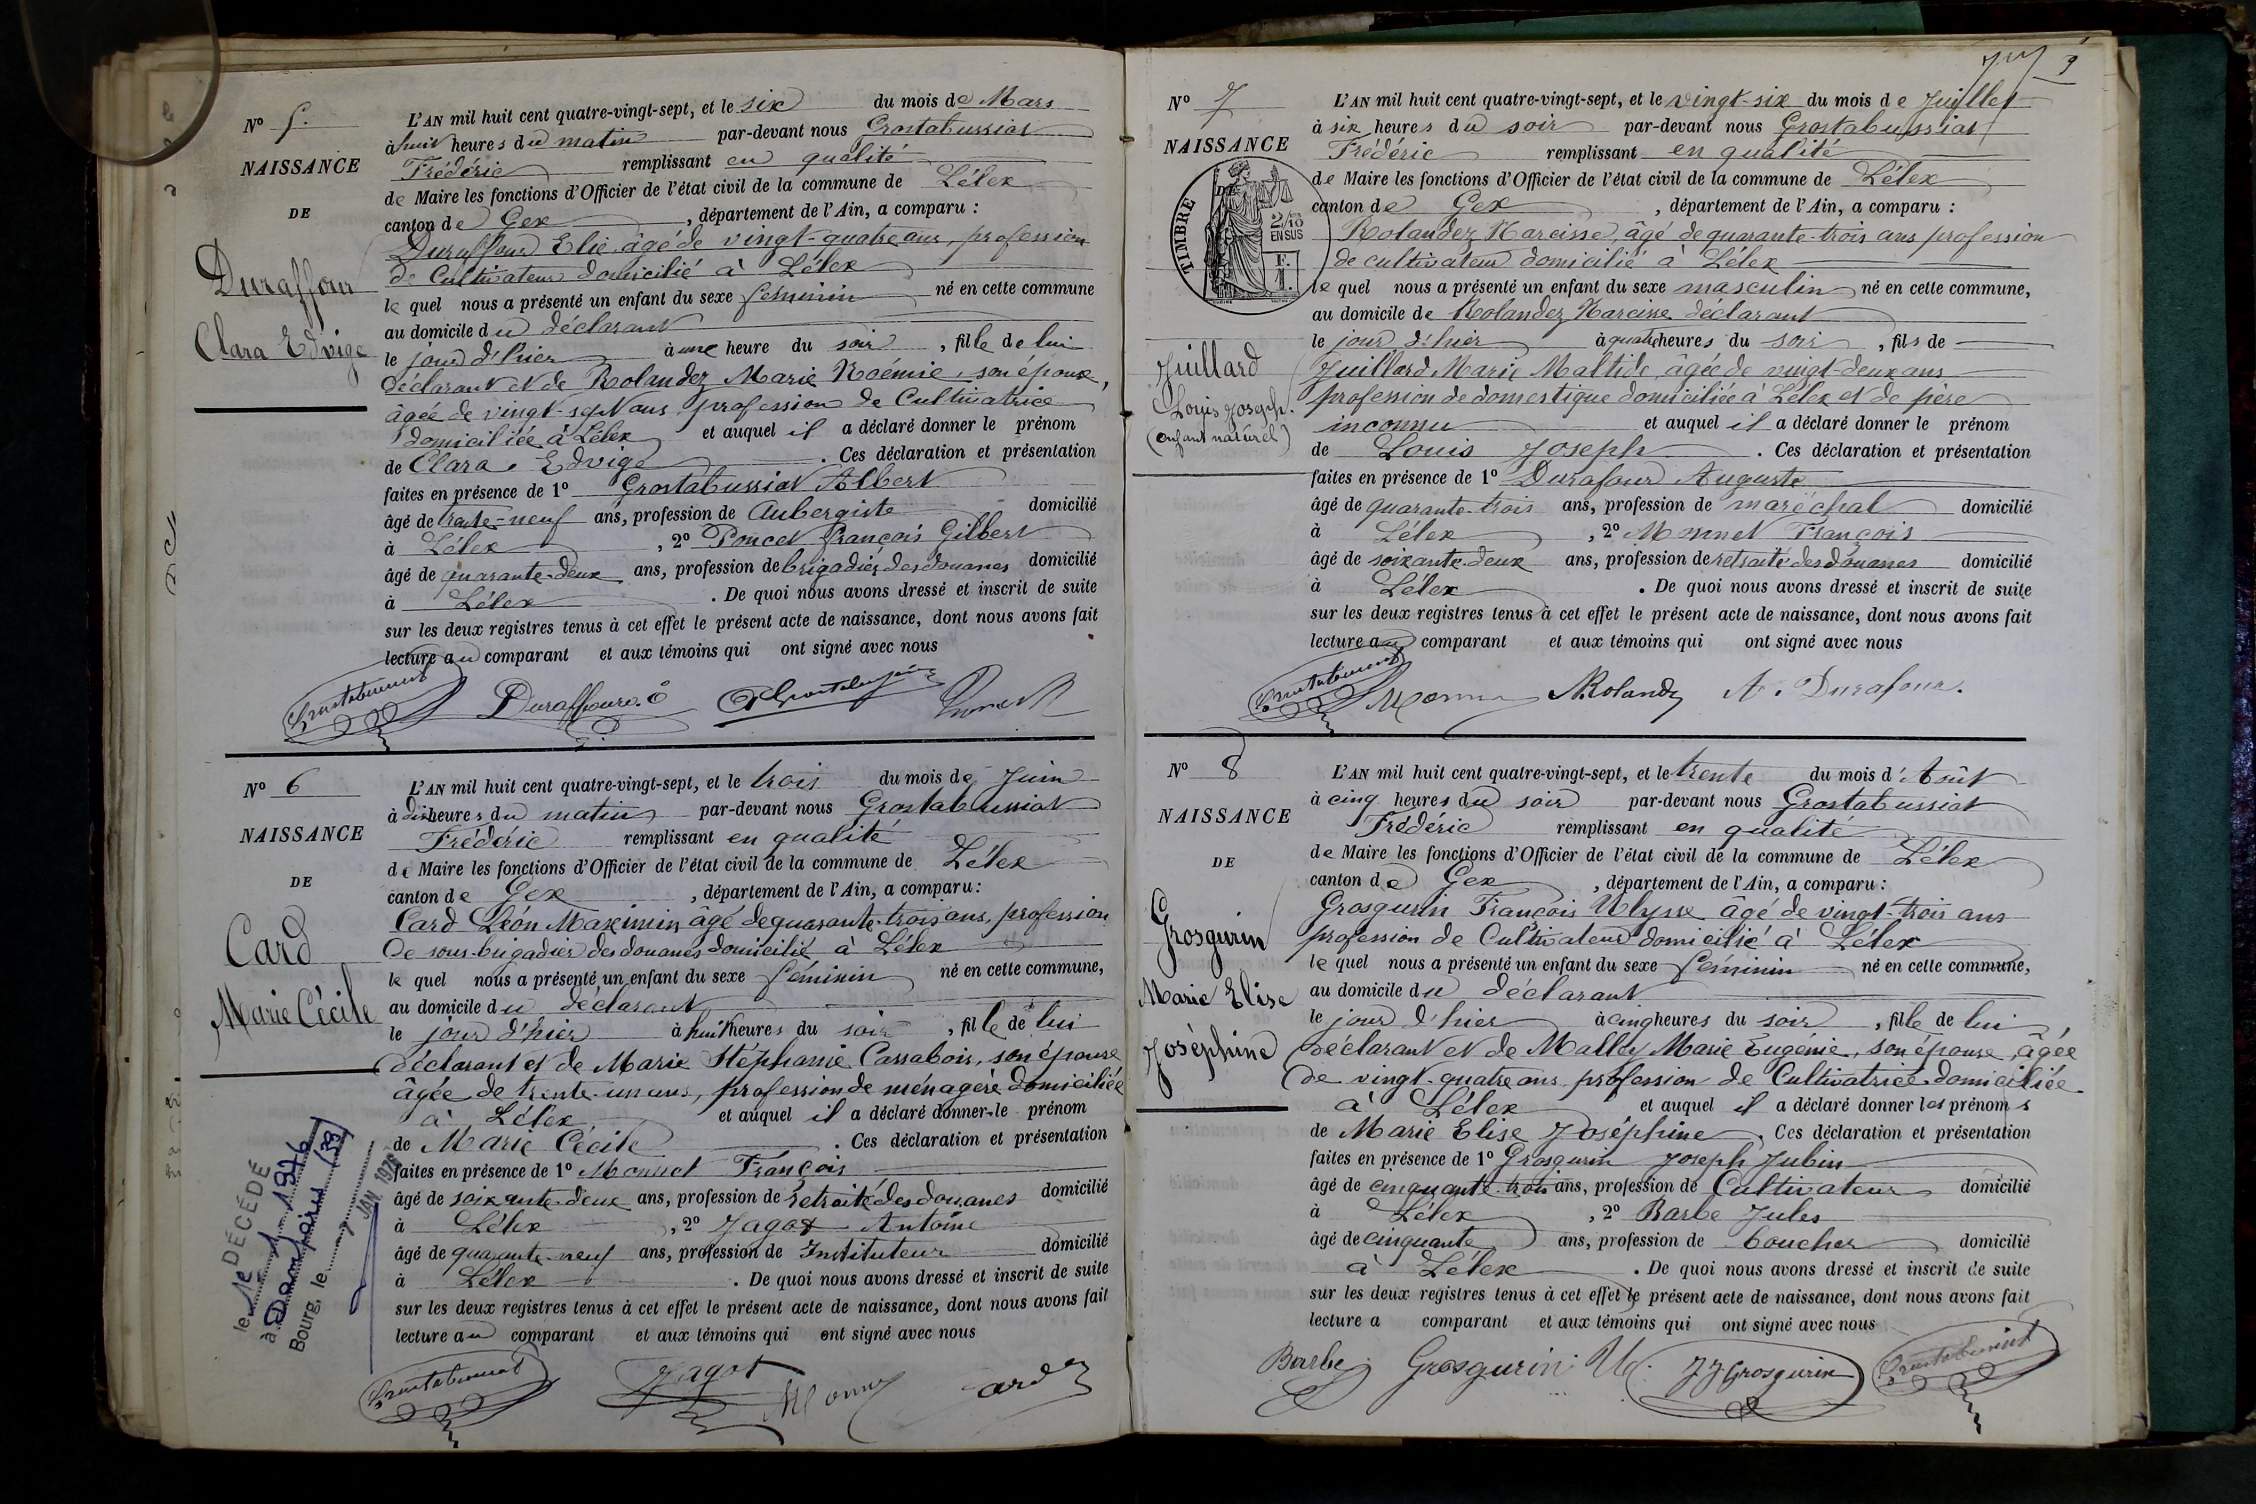 N° 5.
NAISSANCE
DE
Duraffour
Clara Edvige
L'AN mil huit cent quatre-vingt-sept, et le six du mois de Mars
à huit heures du matin par-devant nous Grostabussiat
Frédéric remplissant en qualité
de Maire les fonctions d'Officier de l'état civil de la commune de Lélex
canton de Gex, département de l'Ain, a comparu :
Duraffour Elie, âgé de vingt-quatre ans, profession
de Cultivateur domicilié à Lélex
lequel nous a présenté un enfant du sexe féminin né en cette commune
au domicile du déclarant
le jour d'hier à une heure du soir, fille de lui
déclarant et de Rolandez Marie Noémie, son épouse,
âgée de vingt-sept ans profession de Cultivatrice
domiciliée à Lélex et auquel il a déclaré donner le prénom
de Clara, Edvige. Ces déclaration et présentation
faites en présence de 1° Grostabussiat Albert
âgé de trente-neuf ans, profession de Aubergiste domicilié
à Lélex, 2° Poncet François Gilbert
âgé de quarante-deux ans, profession de brigadier des douanes domicilié
à Lélex. De quoi nous avons dressé et inscrit de suite
sur les deux registres tenus à cet effet le présent acte de naissance, dont nous avons fait
lecture au comparant et aux témoins qui ont signé avec nous
Grostabussiat Duraffour. é
N° 6
NAISSANCE
DE
Card
Marie Cécile
L'AN mil huit cent quatre-vingt-sept, et le trois du mois de Juin
à dix heures du matin par-devant nous Grostabussiat
Frédéric remplissant en qualité
de Maire les fonctions d'Officier de l'état civil de la commune de Lélex
canton de Gex, département de l'Ain, a comparu :
Card Léon Maximin âgé de quarante-trois ans, profession
de sous-brigadier des douanes domicilié à Lélex
lequel nous a présenté un enfant du sexe féminin né en cette commune,
au domicile du déclarant
le jour d'hier à huit heures du soir, fille de lui
déclarant et de Marie Stéphanie Cassabois, son épouse
âgée de trente-un ans, profession de ménagère domiciliée
à Lélex et auquel il a déclaré donner le prénom
de Marie Cécile. Ces déclaration et présentation
faites en présence de 1° Monnet François
âgé de soixante-deux ans, profession de retraité des douanes domicilié
à Lélex, 2° Jagot Antoine
âgé de quarante-neuf ans, profession de Instituteur domicilié
à Lélex. De quoi nous avons dressé et inscrit de suite
sur les deux registres tenus à cet effet le présent acte de naissance, dont nous avons fait
lecture au comparant et aux témoins qui ont signé avec nous
Grostabussiat Jagot Monnet Card
DÉCÉDÉ
le 1-1-1976
à Dampiaris (39)
Bourg, le 7 JAN. 1976
N° 7
NAISSANCE
DE
TIMBRE
2/10
EN SUS
F.
1.
Juillard
Louis Joseph.
(enfant naturel)
L'AN mil huit cent quatre-vingt-sept, et le vingt-six du mois de Juillet
à six heures du soir par-devant nous Grostabussiat
Frédéric remplissant en qualité
de Maire les fonctions d'Officier de l'état civil de la commune de Lélex
canton de Gex, département de l'Ain, a comparu :
Rolandez Narcisse âgé de quarante-trois ans profession
de cultivateur domicilié à Lélex
lequel nous a présenté un enfant du sexe masculin né en cette commune,
au domicile de Rolandez Narcisse déclarant
le jour d'hier à quatre heures du soir, fils de
Juillard Marie Maltide, âgée de vingt-deux ans
profession de domestique domiciliée à Lélex et de père
inconnu et auquel il a déclaré donner le prénom
de Louis Joseph. Ces déclaration et présentation
faites en présence de 1° Durafour Auguste
âgé de quarante-trois ans, profession de maréchal domicilié
à Lélex, 2° Monnet François
âgé de soixante-deux ans, profession de retraité des douanes domicilié
à Lélex. De quoi nous avons dressé et inscrit de suite
sur les deux registres tenus à cet effet le présent acte de naissance, dont nous avons fait
lecture au comparant et aux témoins qui ont signé avec nous
Grostabussiat Monnet N. Rolandez A. Durafour.
N° 8
NAISSANCE
DE
Grosgurin
Marie Elise
Joséphine
L'AN mil huit cent quatre-vingt-sept, et le trente du mois d'Août
à cinq heures du soir par-devant nous Grostabussiat
Frédéric remplissant en qualité
de Maire les fonctions d'Officier de l'état civil de la commune de Lélex
canton de Gex, département de l'Ain, a comparu :
Grosgurin François Ulysse âgé de vingt-trois ans
profession de Cultivateur domicilié à Lélex
lequel nous a présenté un enfant du sexe féminin né en cette commune,
au domicile du déclarant
le jour d'hier à cinq heures du soir, fille de lui
déclarant et de Malley Marie Eugénie, son épouse, âgée
de vingt-quatre ans profession de Cultivatrice domiciliée
à Lélex et auquel il a déclaré donner les prénoms
de Marie Elise Joséphine. Ces déclaration et présentation
faites en présence de 1° Grosgurin Joseph Jubin
âgé de cinquante-trois ans, profession de Cultivateur domicilié
à Lélex, 2° Barbe Jules
âgé de cinquante ans, profession de boucher domicilié
à Lélex. De quoi nous avons dressé et inscrit de suite
sur les deux registres tenus à cet effet le présent acte de naissance, dont nous avons fait
lecture a comparant et aux témoins qui ont signé avec nous
Barbe Grosgurin U. JJ Grosgurin Grostabussiat